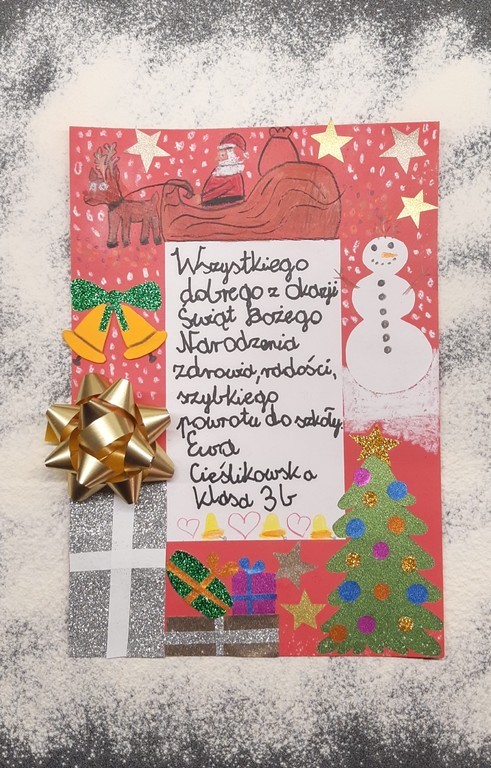 Wszystkiego
dobrego z okazji
Świąt Bożego
Narodzenia
zdrowia, radości,
szybkiego
powrotu do szkoły.
Ewa
Cieślikowska
klasa 3b